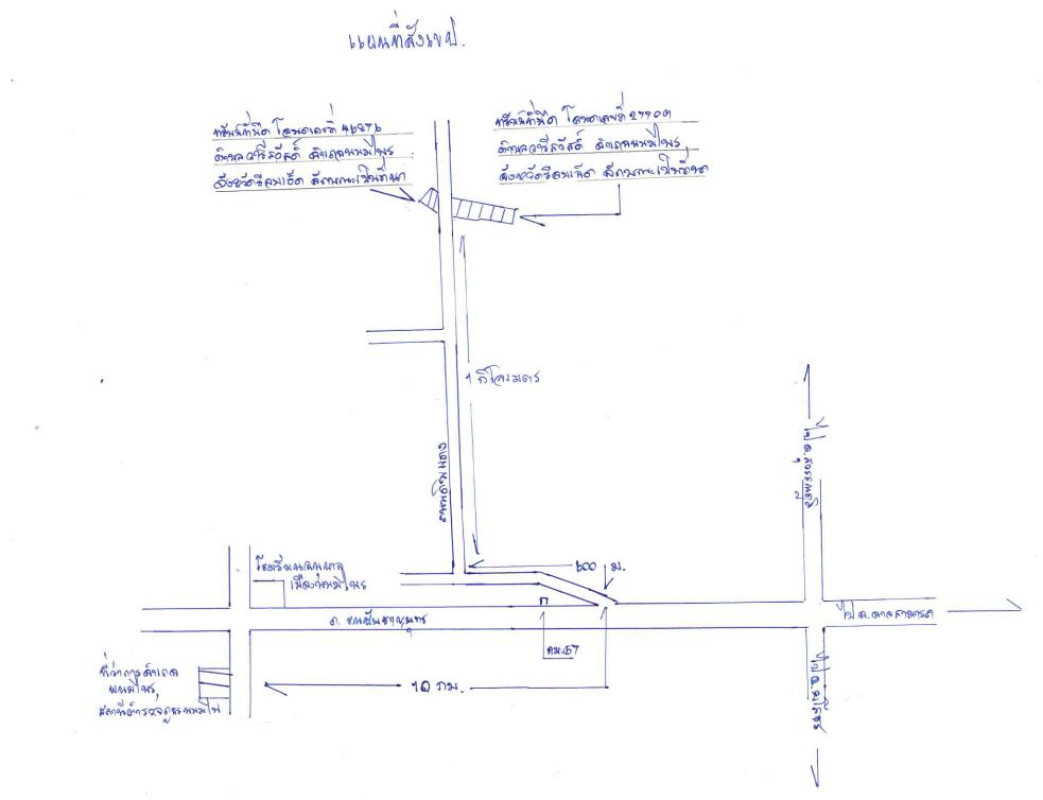 แผนที่สังเขป.
ทรัพย์ที่ยึด โฉนดเลขที่ 46276
ตำบลวารีสวัสดิ์ อำเภอพนมไพร
จังหวัดร้อยเอ็ด สภาพเป็นที่นา
ทรัพย์ที่ยึด โฉนดเลขที่
ตำบลวารีสวัสดิ์ อำเภอพนมไพร
จังหวัดร้อยเอ็ด สภาพเป็นที่นา
1 กิโลเมตร
ไป อ.สุวรรณภูมิ
600 ม.
โรงเรียน
เมืองพนมไพร
ถ.
ไป ต.
กม.57
ที่ว่าการอำเภอ
พนมไพร,
สถานีตำรวจภูธรพนมไพร
10 กม.